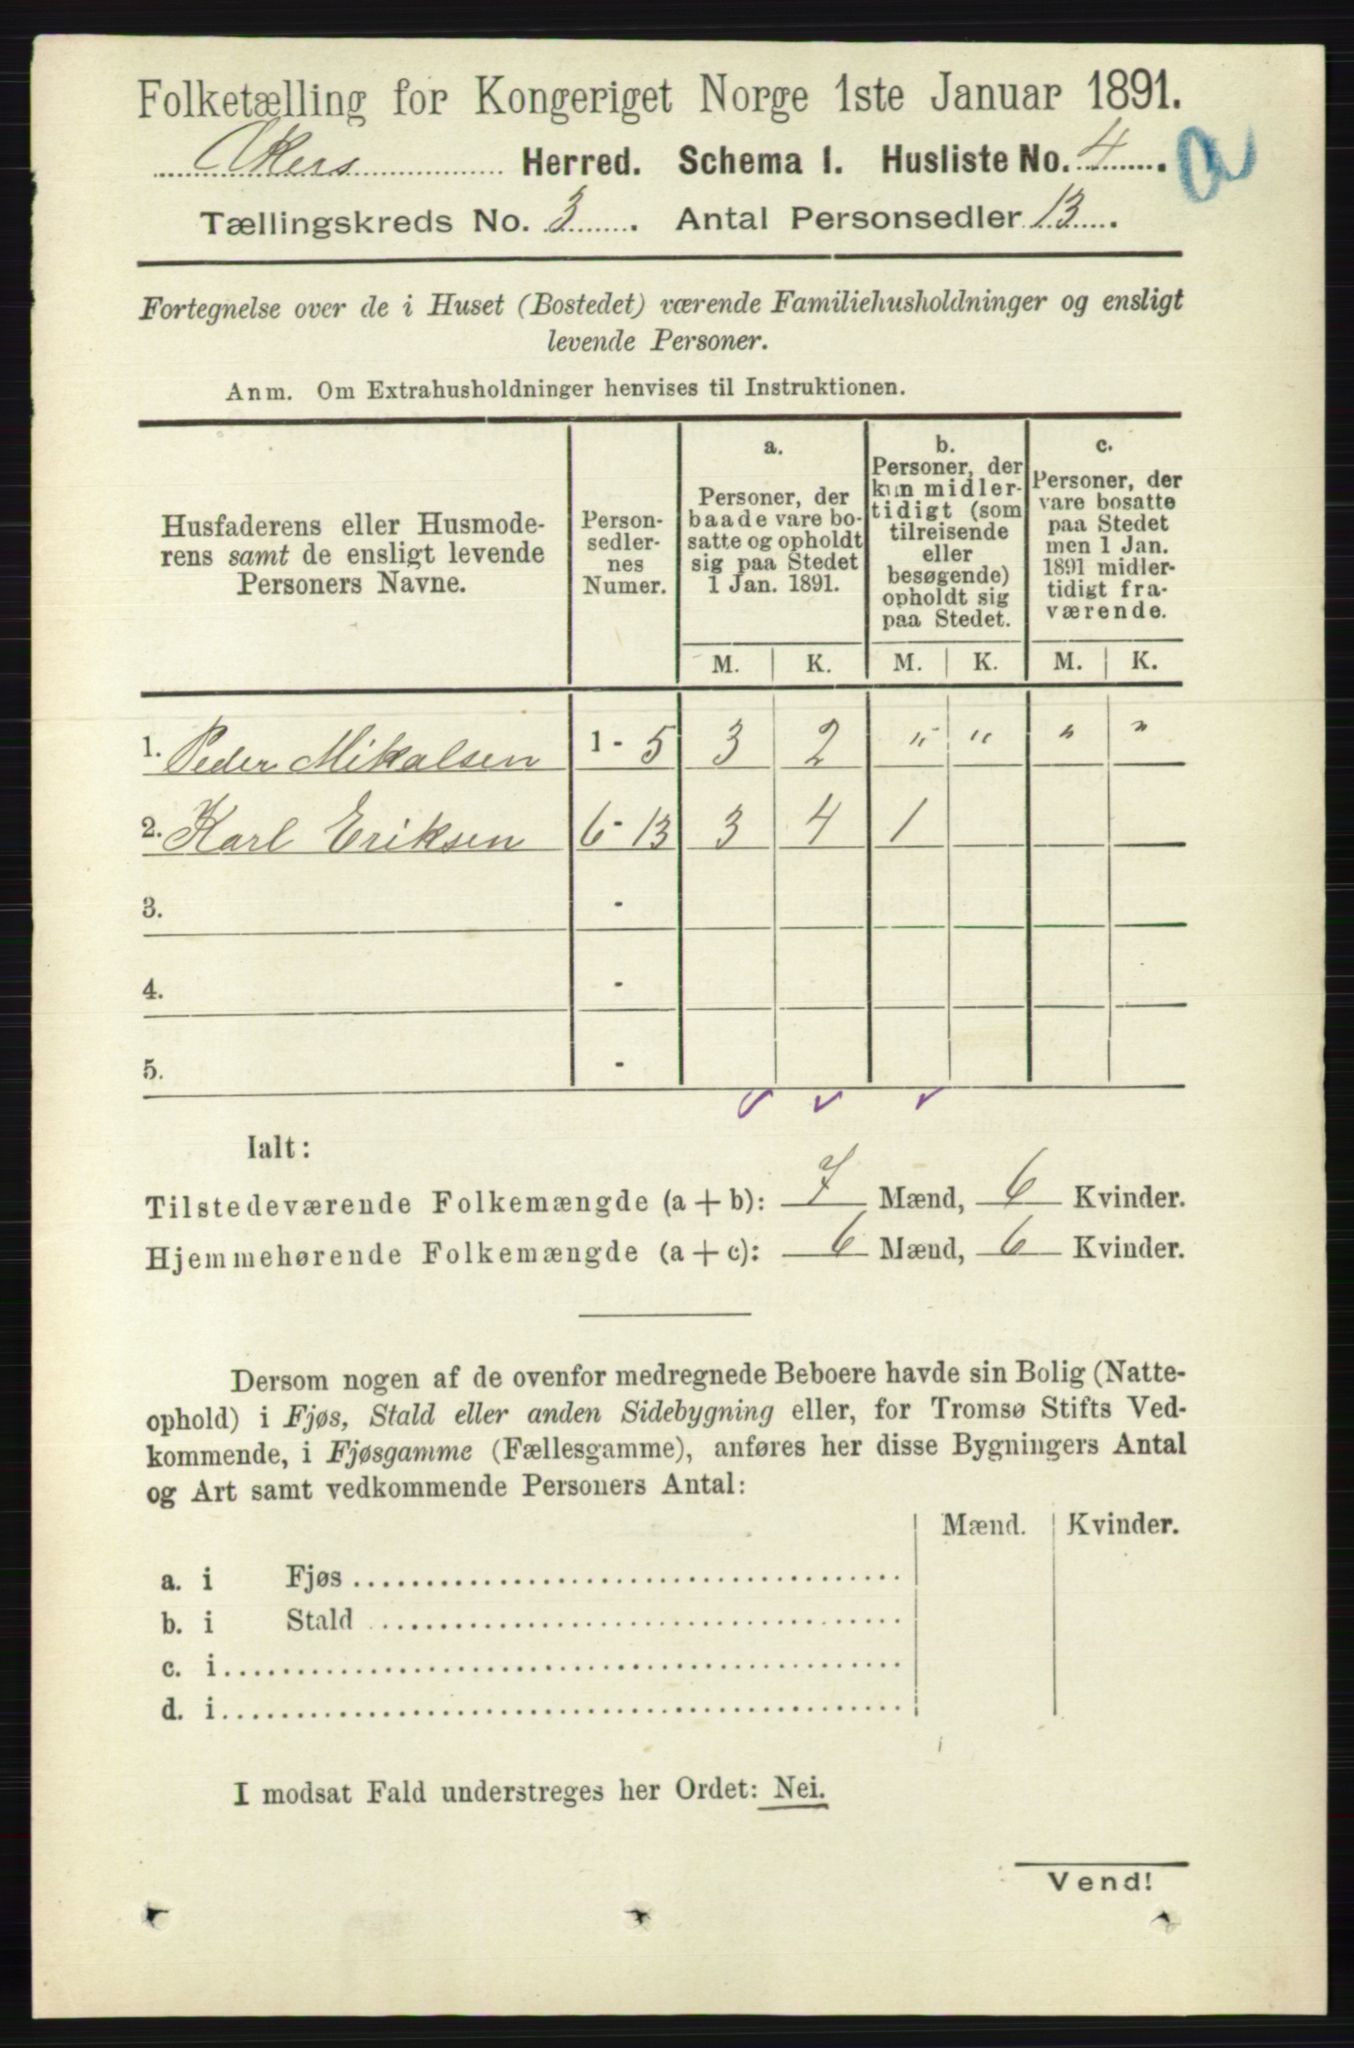 Folketælling for Kongeriget Norge 1ste Januar 1891.
Akers Herred. Schema 1. Husliste No. 4.
a
Tællingskreds No. 3. Antal Personsedler 13.
Fortegnelse over de i Huset (Bostedet) værende Familiehusholdninger og ensligt
levende Personer.
Anm. Om Extrahusholdninger henvises til Instruktionen.
Husfaderens eller Husmode-
rens samt de ensligt levende
Personers Navne.
Person-
sedler-
nes
Numer.
a.
Personer, der
baade vare bo-
satte og opholdt
sig paa Stedet
1 Jan. 1891.
b.
Personer, der
kun midler-
tidigt (som
tilreisende
eller
besøgende)
opholdt sig
paa Stedet.
c.
Personer, der
vare bosatte
paa Stedet
men 1 Jan.
1891 midler-
tidigt fra-
værende.
M. K. M. K. M. K.
1. Peder Mikalsen 1 - 5 3 2 " " " "
2. Karl Eriksen 6 - 13 3 4 1
3. -
4. -
5. -
Ialt:
Tilstedeværende Folkemængde (a + b): 7 Mænd, 6 Kvinder.
Hjemmehørende Folkemængde (a + c): 6 Mænd, 6 Kvinder.
Dersom nogen af de ovenfor medregnede Beboere havde sin Bolig (Natte-
ophold) i Fjøs, Stald eller anden Sidebygning eller, for Tromsø Stifts Ved-
kommende, i Fjøsgamme (Fællesgamme), anføres her disse Bygningers Antal
og Art samt vedkommende Personers Antal:
Mænd. Kvinder.
a. i Fjøs
b. i Stald
c. i
d. i
I modsat Fald understreges her Ordet: Nei.
Vend!